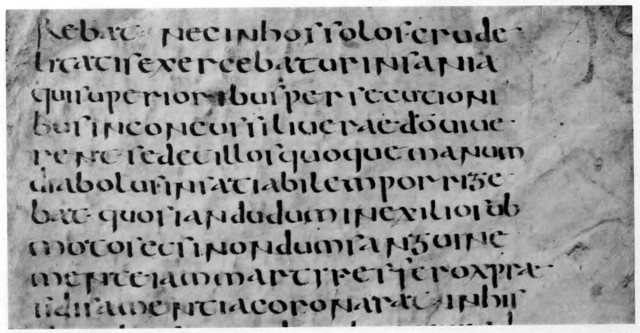 rebat· nec in hos solos crude·
litatis exercebatur insania
qui superioribus persecutioni
bus inconcussi liuerae dō uiue·
rent· sed et illos quoque manum
diabolus insatiabilem porrige·
bat· quos iandudum in exilio sub
motos etsi nondum sanguine
mente iam martyres ferox prae·
sidis amentia coronarat· in his